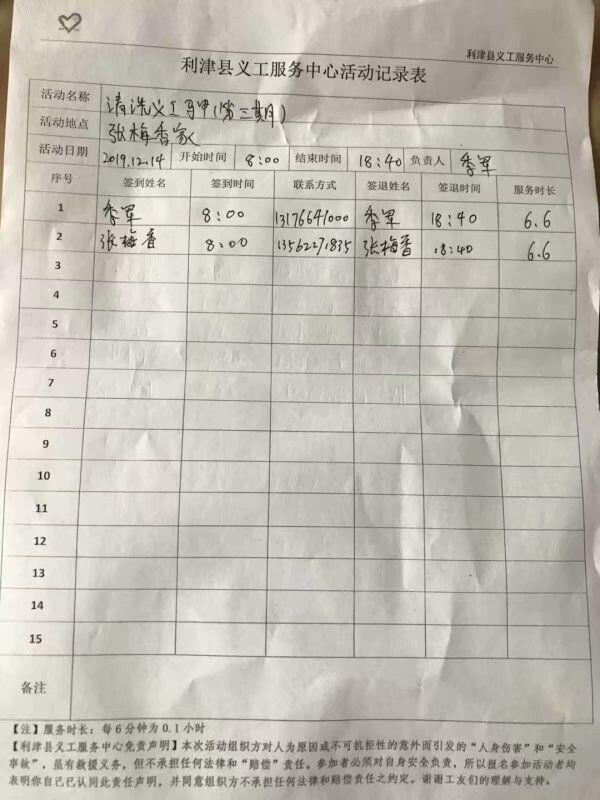 利津县义工服务中心
利津县义工服务中心活动记录表
活动名称 清洗义工马甲(第三期)
活动地点 张梅香家
活动日期 2019.12.14 开始时间 8:00 结束时间 18:40 负责人 季军
序号 签到姓名 签到时间 联系方式 签退姓名 签退时间 服务时长
1 季军 8:00 13176641000 季军 18:40 6.6
2 张梅香 8:00 13562271835 张梅香 18:40 6.6
3
4
5
6
7
8
9
10
11
12
13
14
15
备注
【注】服务时长：每6分钟为0.1小时
【利津县义工服务中心免责声明】本次活动组织方对人为原因或不可抗拒性的意外而引发的“人身伤害”和“安全
事故”，虽有救援义务，但不承担任何法律和“赔偿”责任。参加者必须对自身安全负责，所以报名参加活动者均
表明你自己已认同此责任声明，并同意组织方不承担任何法律和赔偿责任之约定。谢谢工友们的理解与支持。